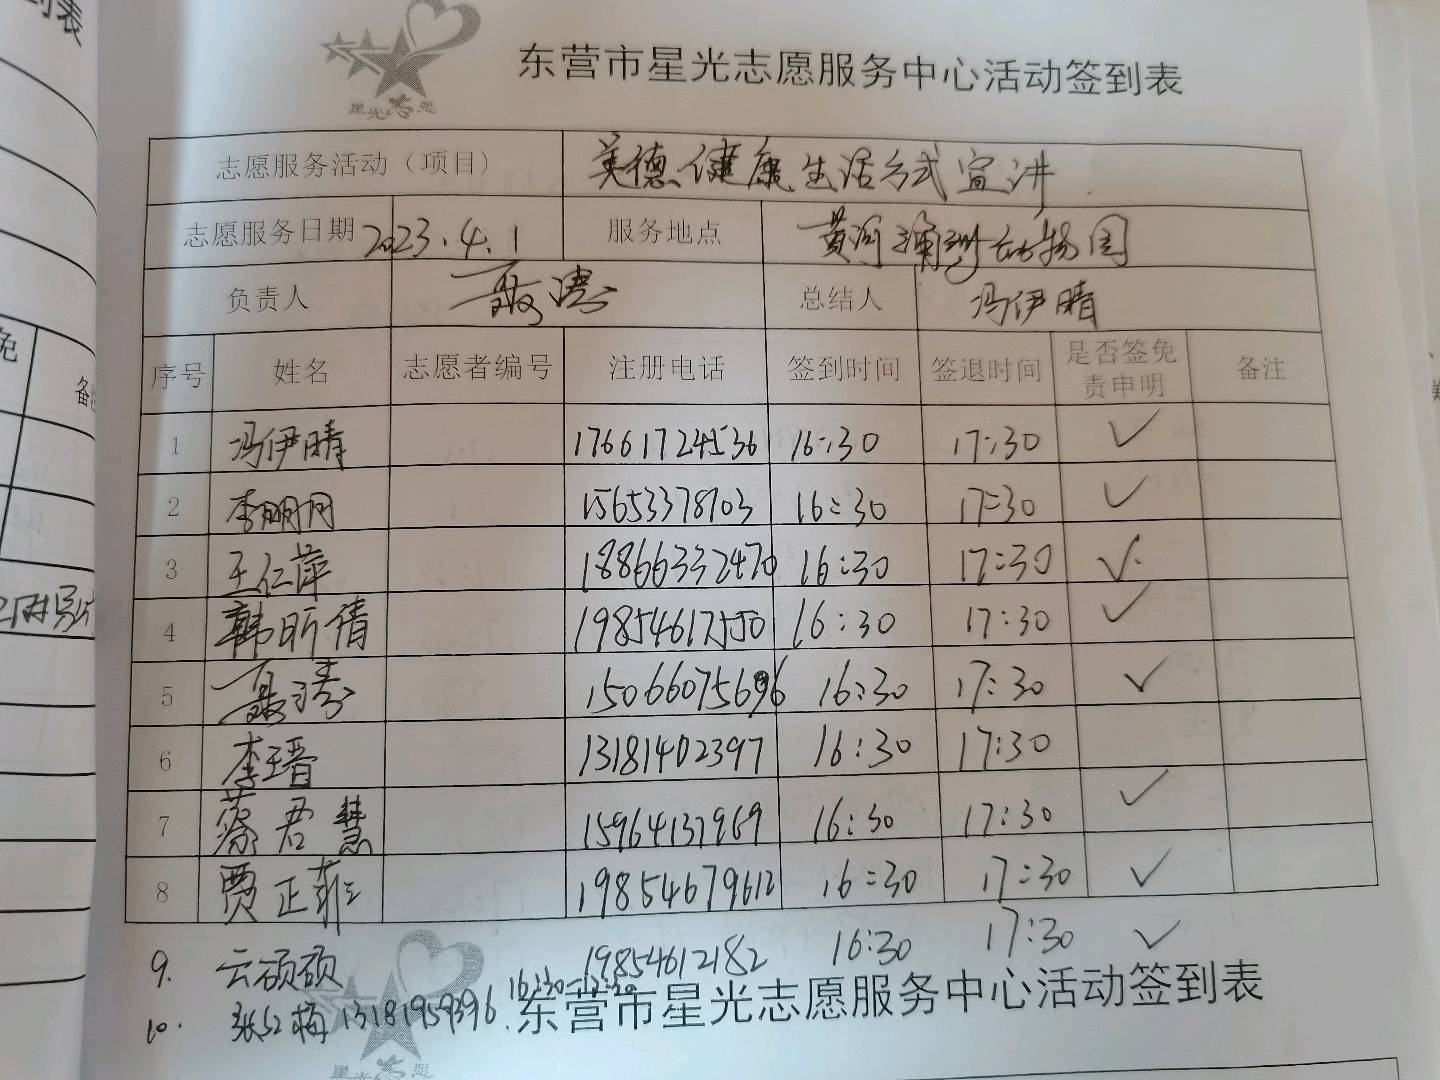 到表
星光志愿
东营市星光志愿服务中心活动签到表
志愿服务活动（项目） 美德健康生活方式宣讲
志愿服务日期 2023.4.1 服务地点 黄河 动物园
负责人 聂涛 总结人 冯伊晴
序号 姓名 志愿者编号 注册电话 签到时间 签退时间 是否签免责申明 备注
1 冯伊晴 17661724536 16:30 17:30 ✓
2 李明月 15653378703 16:30 17:30 ✓
3 王仁萍 18866332470 16:30 17:30 ✓
4 韩昕倩 19854617550 16:30 17:30 ✓
5 聂涛 15066075696 16:30 17:30 ✓
6 李瑨 13181402397 16:30 17:30
7 蔡君慧 15964137969 16:30 17:30 ✓
8 贾正菲 19854679612 16:30 17:30 ✓
9. 云硕硕 19854612182 16:30 17:30 ✓
10. 张红梅 13181959396. 16:30-17:30
东营市星光志愿服务中心活动签到表
星光志愿
免
备注